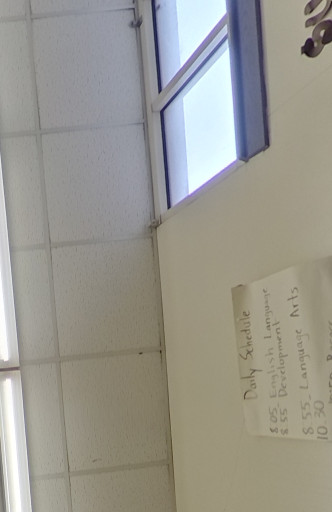 Daily Schedule
8:05 English Language
8:55 Development
8:55- Language Arts
10:30